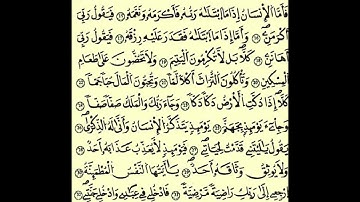 فَأَمَّا ٱلْإِنسَٰنُ إِذَا مَا ٱبْتَلَىٰهُ رَبُّهُۥ فَأَكْرَمَهُۥ وَنَعَّمَهُۥ ١٤ فَيَقُولُ رَبِّىٓ
أَكْرَمَنِ ١٥ وَأَمَّآ إِذَا مَا ٱبْتَلَىٰهُ فَقَدَرَ عَلَيْهِ رِزْقَهُۥ ١٦ فَيَقُولُ رَبِّىٓ
أَهَٰنَنِ ١٧ كَلَّا ۖ بَل لَّا تُكْرِمُونَ ٱلْيَتِيمَ ١٨ وَلَا تَحُضُّونَ عَلَىٰ طَعَامِ
ٱلْمِسْكِينِ ١٩ وَتَأْكُلُونَ ٱلتُّرَاثَ أَكْلًا لَّمًّا ٢٠ وَتُحِبُّونَ ٱلْمَالَ حُبًّا جَمًّا ٢١
كَلَّآ إِذَا دُكَّتِ ٱلْأَرْضُ دَكًّا دَكًّا ٢٢ وَجَآءَ رَبُّكَ وَٱلْمَلَكُ صَفًّا صَفًّا ٢٣
وَجِا۟ىٓءَ يَوْمَئِذٍۭ بِجَهَنَّمَ ٢٤ يَوْمَئِذٍ يَتَذَكَّرُ ٱلْإِنسَٰنُ وَأَنَّىٰ لَهُ ٱلذِّكْرَىٰ ٢٥
يَقُولُ يَٰلَيْتَنِى قَدَّمْتُ لِحَيَاتِى ٢٦ فَيَوْمَئِذٍ لَّا يُعَذِّبُ عَذَابَهُۥٓ أَحَدٌ ٢٧
وَلَا يُوثِقُ وَثَاقَهُۥٓ أَحَدٌ ٢٨ يَٰٓأَيَّتُهَا ٱلنَّفْسُ ٱلْمُطْمَئِنَّةُ ٢٩
ٱرْجِعِىٓ إِلَىٰ رَبِّكِ رَاضِيَةً مَّرْضِيَّةً ٣٠ فَٱدْخُلِى فِى عِبَٰدِى ٣١ وَٱدْخُلِى جَنَّتِى ٣٢